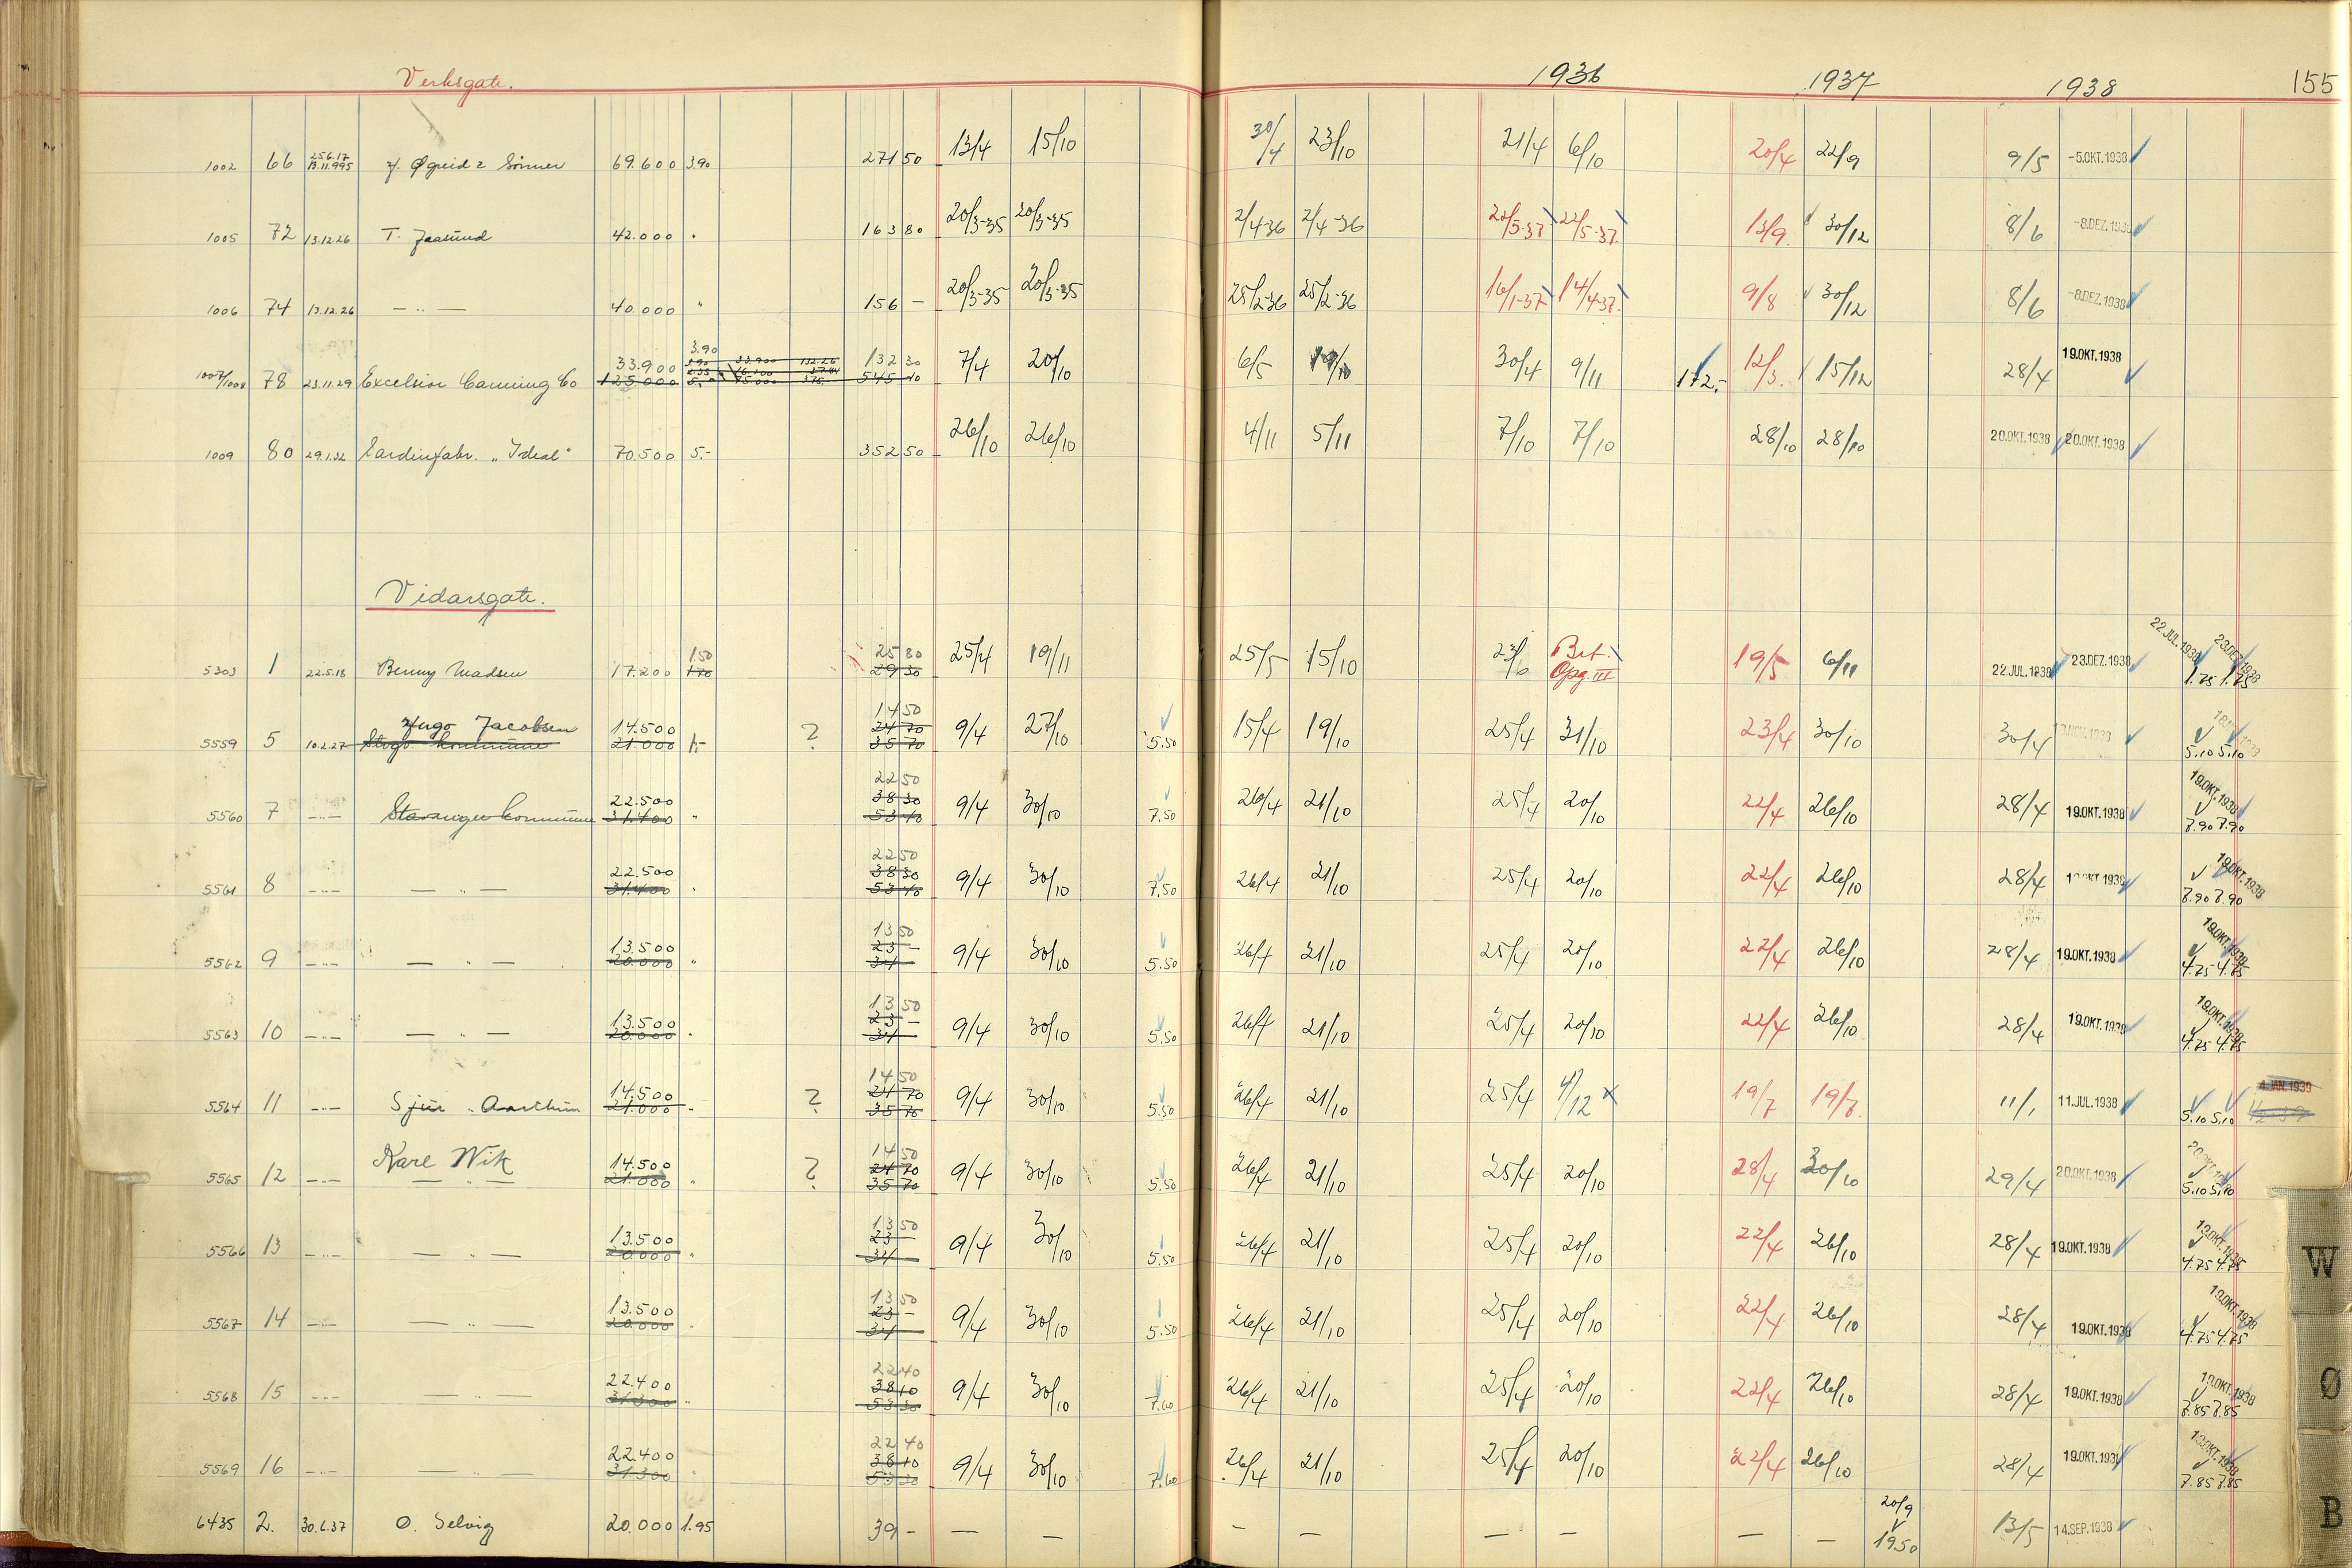 Verksgate. 1936 1937 1938 155
1002 66 25.6.17 13.11.995 J. Øgreid & Sønner 69.600 3.90 271 50 13/4 15/10 30/4 23/10 21/4 6/10 20/4 22/9 9/5 -5.OKT.1938
1005 72 13.12.26 T. Jaasund 42.000 " 163 80 20/3-35 20/3-35 2/4-36 2/4-36 22/5-37 22/5-37. 13/9. 30/12 8/6 -8.DEZ.1938
1006 74 13.12.26 — " — 40.000 " 156 — 20/3-35 20/3-35 25/2-36 25/2-36 16/1-37 14/4-37. 9/8 30/12 8/6 -8.DEZ.1938
3.90
1007/1008 78 23.11.29 Excelsior Canning Co 33.900 132 30 7/4 20/10 6/5 19/10 30/4 9/11 172.- 12/3. 15/12 28/4 19.OKT.1938
125.000 5.- 75.000 375.- 545 10
1009 80 29.1.32 Sardinfabr. "Ideal" 70.500 5.- 352 50 26/10 26/10 4/11 5/11 7/10 7/10 28/10 28/10 20.OKT.1938 20.OKT.1938
Vidarsgate.
5303 1 22.5.18 Benny Madsen 17.200 1.50 1.70 25 80 29 30 25/4 19/11 25/5 15/10 23/6 Bet. Opg. III 19/5 6/11 22.JUL.1938 23.DEZ.1938 22.JUL.1938 23.DEZ.1938 1.75 1.75
Hugo Jacobsen 14.500 14 50 24 70
5559 5 10.2.27 Stvgr. kommune 21.000 1.- ? 35 70 9/4 27/10 5.50 15/4 19/10 25/4 31/10 23/4 30/10 30/4 5.10 5.10
5560 7 — " — Stavanger kommune 22.500 31.400 " 22 50 38 30 53 40 9/4 30/10 7.50 26/4 21/10 25/4 20/10 22/4 26/10 28/4 19.OKT.1938 19.OKT.1938 7.90 7.90
5561 8 — " — — " — 22.500 31.400 " 22 50 38 30 53 40 9/4 30/10 7.50 26/4 21/10 25/4 20/10 22/4 26/10 28/4 19.OKT.1938 19.OKT.1938 7.90 7.90
5562 9 — " — — " — 13.500 20.000 " 13 50 23 — 34 — 9/4 30/10 5.50 26/4 21/10 25/4 20/10 22/4 26/10 28/4 19.OKT.1938 19.OKT.1938 4.75 4.75
5563 10 — " — — " — 13.500 20.000 " 13 50 23 — 34 — 9/4 30/10 5.50 26/4 21/10 25/4 20/10 22/4 26/10 28/4 19.OKT.1938 19.OKT.1938 4.75 4.75
5564 11 — " — Sjur 14.500 21.000 " ? 14 50 24 70 35 70 9/4 30/10 5.50 26/4 21/10 25/4 4/12 x 19/7 19/7. 11/1 11.JUL.1938 5.10 5.10 4.JAN.1939
5565 12 — " — Kare Wik — " — 14.500 21.000 " ? 14 50 24 70 35 70 9/4 30/10 5.50 26/4 21/10 25/4 20/10 28/4 30/10 29/4 20.OKT.1938 20.OKT.1938 5.10 5.10
5566 13 — " — — " — 13.500 20.000 " 13 50 23 — 34 — 9/4 30/10 5.50 26/4 21/10 25/4 20/10 22/4 26/10 28/4 19.OKT.1938 19.OKT.1938 4.75 4.75
5567 14 — " — — " — 13.500 20.000 " 13 50 23 — 34 — 9/4 30/10 5.50 26/4 21/10 25/4 20/10 22/4 26/10 28/4 19.OKT.1938 19.OKT.1938 4.75 4.75
5568 15 — " — — " — 22.400 31.300 " 22 40 38 10 53 30 9/4 30/10 7.60 26/4 21/10 25/4 20/10 22/4 26/10 28/4 19.OKT.1938 19.OKT.1938 7.85 7.85
5569 16 — " — — " — 22.400 31.300 " 22 40 38 10 53 30 9/4 30/10 7.60 26/4 21/10 25/4 20/10 22/4 26/10 28/4 19.OKT.1938 19.OKT.1938 7.85 7.85
6435 2. 30.6.37 O. Selvig 20.000 1.95 39 - — — — — — — — — 20/9 19.50 13/5 14.SEP.1938
W
Ø
B